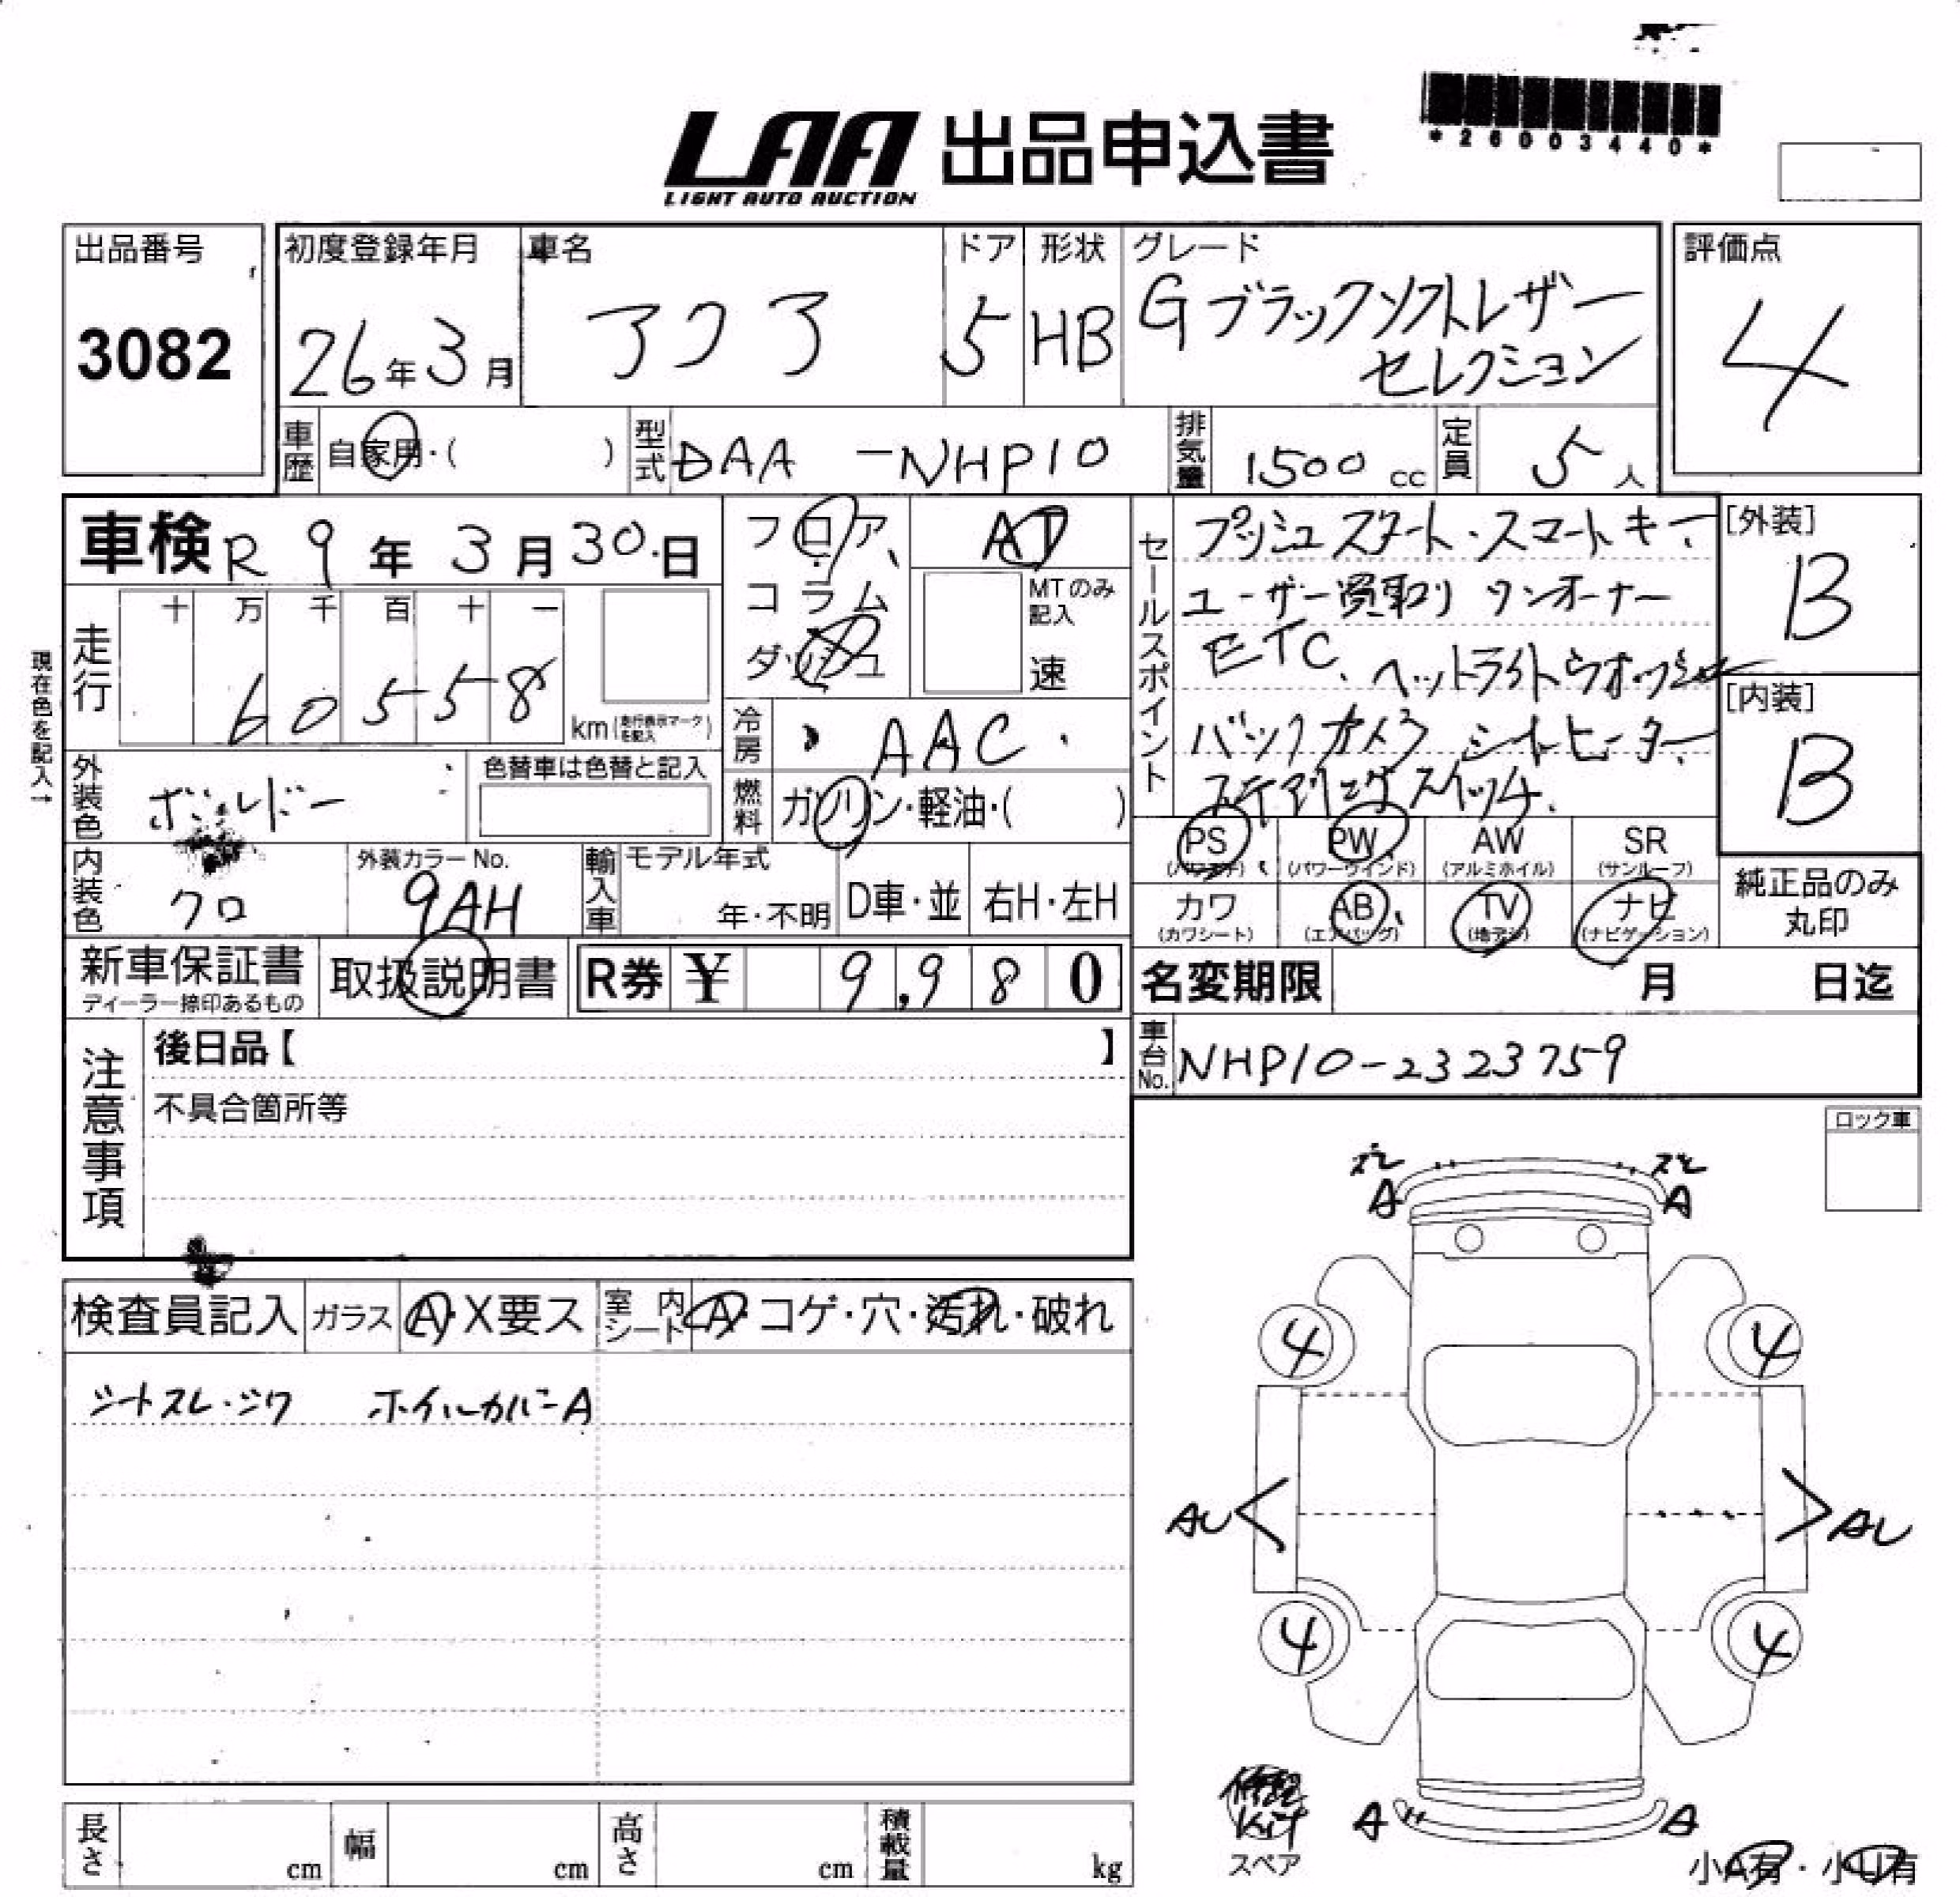 *26003440*
LAA 出品申込書
LIGHT AUTO AUCTION
出品番号
3082
初度登録年月
26年3月
車名
アクア
ドア
5
形状
HB
グレード
Gブラックソフトレザー
セレクション
評価点
4
車歴 自家用・( )
型式 DAA-NHP10
排気量 1500cc
定員 5人
車検 R9年3月30日
フロア
コラム
ダッシュ
AT
MTのみ記入
速
セールスポイント
プッシュスタート・スマートキー
ユーザー買取り ワンオーナー
ETC、ヘットライトウオッシャー
バックカメラ シートヒーター
ステアリングスイッチ
[外装]
B
[内装]
B
現在色を記入→
走行
十 万 千 百 十 一
6 0 5 5 8
km(走行表示マークを記入)
冷房 AAC
外装色 ボルドー
色替車は色替と記入
燃料 ガソリン・軽油・( )
内装色 クロ
外装カラーNo.
9AH
輸入車
モデル年式
年・不明
D車・並
右H・左H
PS
(パワステ)
PW
(パワーウインド)
AW
(アルミホイル)
SR
(サンルーフ)
カワ
(カワシート)
AB
(エアバッグ)
TV
(地デジ)
ナビ
(ナビゲーション)
純正品のみ
丸印
新車保証書
ディーラー捺印あるもの
取扱説明書
R券 ¥ 9,980
名変期限 月 日迄
注意事項
後日品【 】
不具合箇所等
車台No. NHP10-2323759
ロック車
検査員記入
ガラス A・X要ス
室内シート A・コゲ・穴・汚れ・破れ
シートスレ・シワ ホイルカバーA
ズレ ズレ
A A
4 4
AU AU
4 4
修理
Kit
スペア
A A
小A有・小U有
長さ cm
幅 cm
高さ cm
積載量 kg